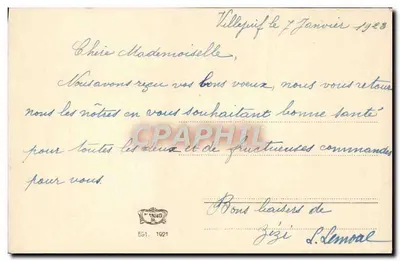 Villejuif le 7 Janvier 1923
Chère Mademoiselle,
Nous avons reçu vos bons voeux, nous vous retour
nous les nôtres en vous souhaitant bonne santé
pour toutes les deux et de fructueuses commandes
pour vous.
Bons baisers de
Zézé L. Lemoal
CPARAMA